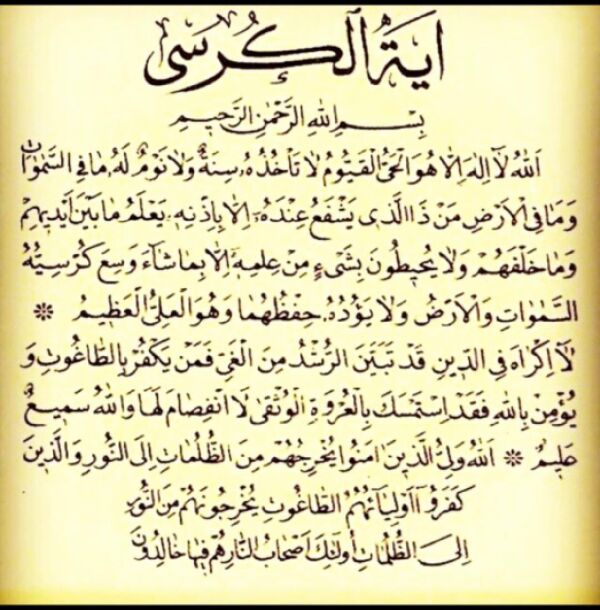 اٰيَةُ الْكُرْسِى
بِسْمِ اللهِ الرَّحْمٰنِ الرَّحِيمِ
اَللهُ لَآ اِلٰهَ اِلَّا هُوَ الْحَىُّ الْقَيُّومُ لَا تَأْخُذُهُ سِنَةٌ وَلَا نَوْمٌ لَهُ مَا فِى السَّمٰوَاتِ
وَمَا فِى الْاَرْضِ مَنْ ذَا الَّذِى يَشْفَعُ عِنْدَهُ اِلَّا بِاِذْنِهِ يَعْلَمُ مَا بَيْنَ اَيْدِيهِمْ
وَمَا خَلْفَهُمْ وَلَا يُحِيطُونَ بِشَىْءٍ مِنْ عِلْمِهِ اِلَّا بِمَا شَآءَ وَسِعَ كُرْسِيُّهُ
السَّمٰوَاتِ وَالْاَرْضَ وَلَا يَؤُدُهُ حِفْظُهُمَا وَهُوَ الْعَلِىُّ الْعَظِيمُ ❊
لَآ اِكْرَاهَ فِى الدِّينِ قَدْ تَبَيَّنَ الرُّشْدُ مِنَ الْغَىِّ فَمَنْ يَكْفُرْ بِالطَّاغُوتِ وَ
يُؤْمِنْ بِاللهِ فَقَدِ اسْتَمْسَكَ بِالْعُرْوَةِ الْوُثْقٰى لَا انْفِصَامَ لَهَا وَاللهُ سَمِيعٌ
عَلِيمٌ ❊ اَللهُ وَلِىُّ الَّذِينَ اٰمَنُوا يُخْرِجُهُمْ مِنَ الظُّلُمَاتِ اِلَى النُّورِ وَالَّذِينَ
كَفَرُوآ اَوْلِيَآئُهُمُ الطَّاغُوتُ يُخْرِجُونَهُمْ مِنَ النُّورِ
اِلَى الظُّلُمَاتِ اُولٰئِكَ اَصْحَابُ النَّارِ هُمْ فِيهَا خَالِدُونَ